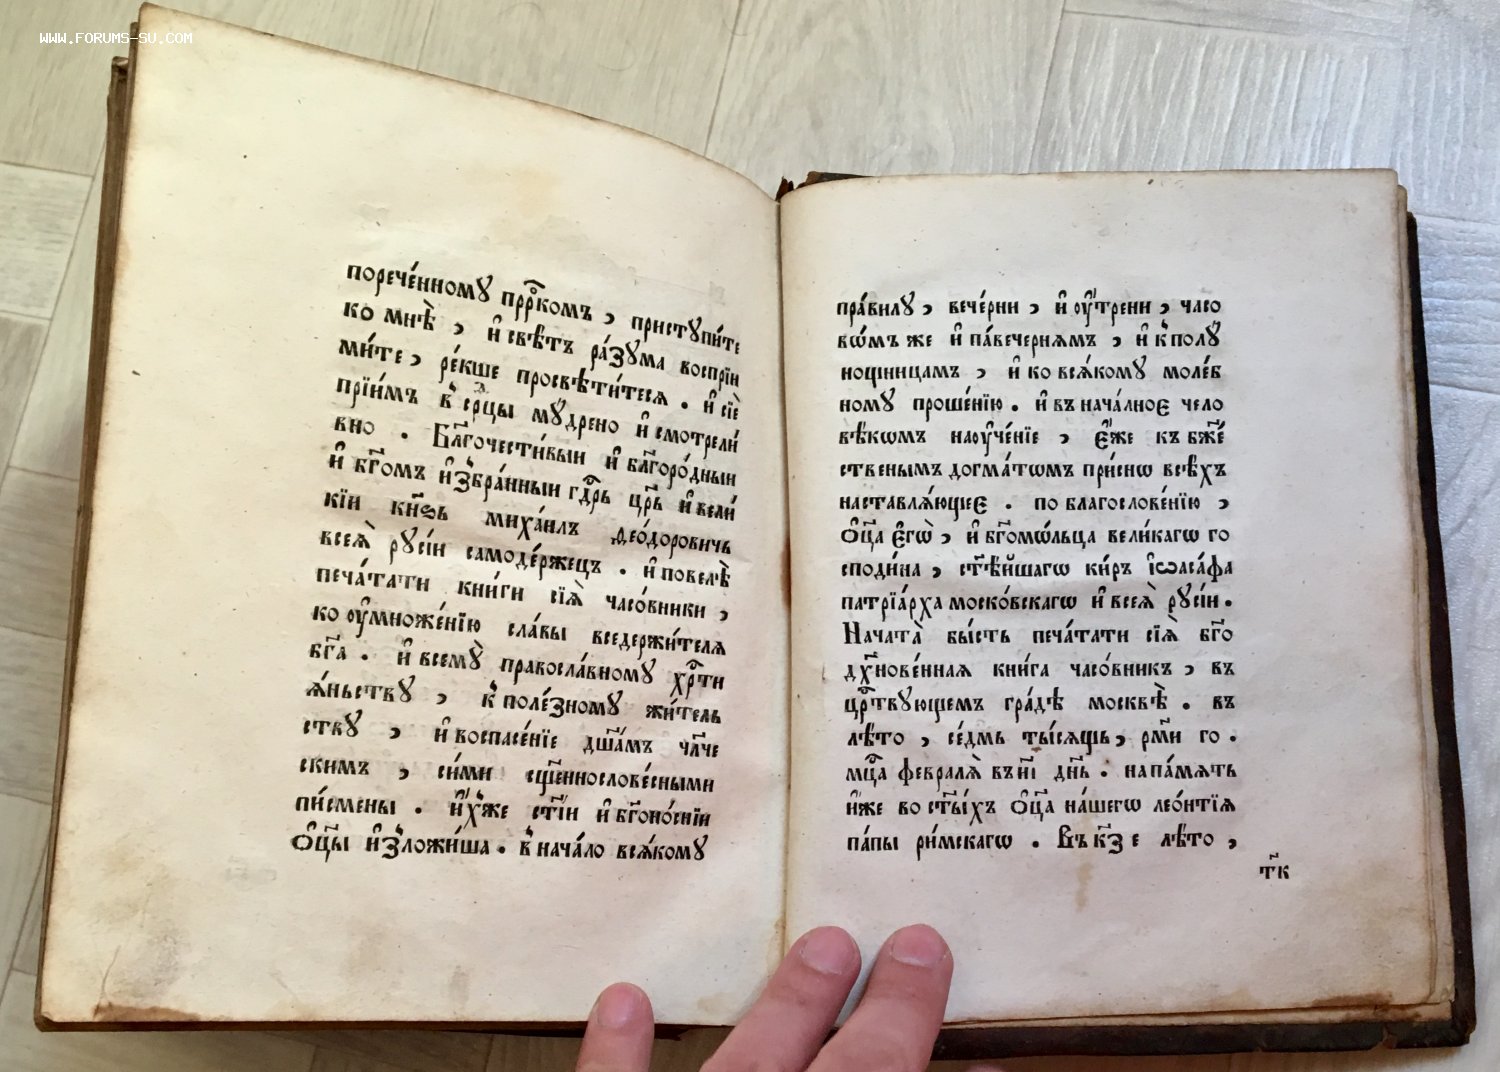 WWW.FORUMS-SU.COM
порече́нномꙋ прⷪ҇ркомъ , пристꙋпи́те
ко мнѣ̀ , и҆ свѣ́тъ ра́зꙋма воспрїи
ми́те , ре́кше просвѣти́теся . и҆ сїѐ
прїи́мъ в̾ срⷣцы мꙋ́дрено и҆ смотрели́
вно . Бл҃гочести́выи и҆ бл҃горо́дныи
и҆ бг҃омъ и҆з̾бра́нныи гдⷭ҇рь цр҃ь и҆ вели́
кїи кн҃ѕь михаи́лъ ѳео́доровичь
всеѧ̀ рꙋсі́и самоде́ржецъ . и҆ повелѣ̀
печа́тати кни́ги сїѧ̀ часо́вники ,
ко оу҆множе́нїю сла́вы вседержи́телѧ
бг҃а . и҆ всемꙋ̀ правосла́вномꙋ хрⷭ҇ти
ѧ́ньствꙋ , к̾ поле́зномꙋ жи́тель
ствꙋ , и҆ воспасе́нїе дш҃а́мъ чл҃че
скимъ , си́ми сщ҃еннослове́сными
пи́смены . и҆́х̾же ст҃і́и и҆ бг҃оно́снїи
ѻ҆ц҃ы и҆з̾ложи́ша . в̾ нача́ло всѧ́комꙋ
пра́вилꙋ , вече́рни , и҆ оу҆́трени , часо
вѡ́мъ же и҆ па́вечернѧмъ , и҆ к̾ полꙋ̀
нощницамъ , и҆ ко всѧ́комꙋ моле́б
номꙋ проше́нїю . и҆ въ нача́лное чело
вѣкѡмъ наоу҆че́нїе , є҆́же къ бж҃е́
ственымъ догма́тѡмъ при́снѡ всѣ́хъ
наставлѧ́ющее . по благослове́нїю ,
ѻ҆ц҃а є҆гѡ̀ , и҆ бг҃омѡ́льца вели́кагѡ го
споди́на , ст҃ѣ́йшагѡ ки́ръ і҆ѡаса́фа
патрїа́рха моско́вскагѡ и҆ всеѧ̀ рꙋсі́и .
Начата̀ бы́сть печа́тати сїѧ̀ бг҃о
дх҃нове́нная кни́га часо́вникъ , въ
црⷭ҇твꙋющемъ гра́дѣ москвѣ̀ . въ
лѣ́то , се́дмь ты́сящь , рм҃и го .
мцⷭ҇а февралѧ̀ въ н҃і дн҃ь . на па́мѧть
и҆́же во ст҃ы́хъ ѻ҆ц҃а на́шегѡ лео́нтїѧ
па́пы ри́мскагѡ . Въ к҃з е лѣ́то ,
т҃к